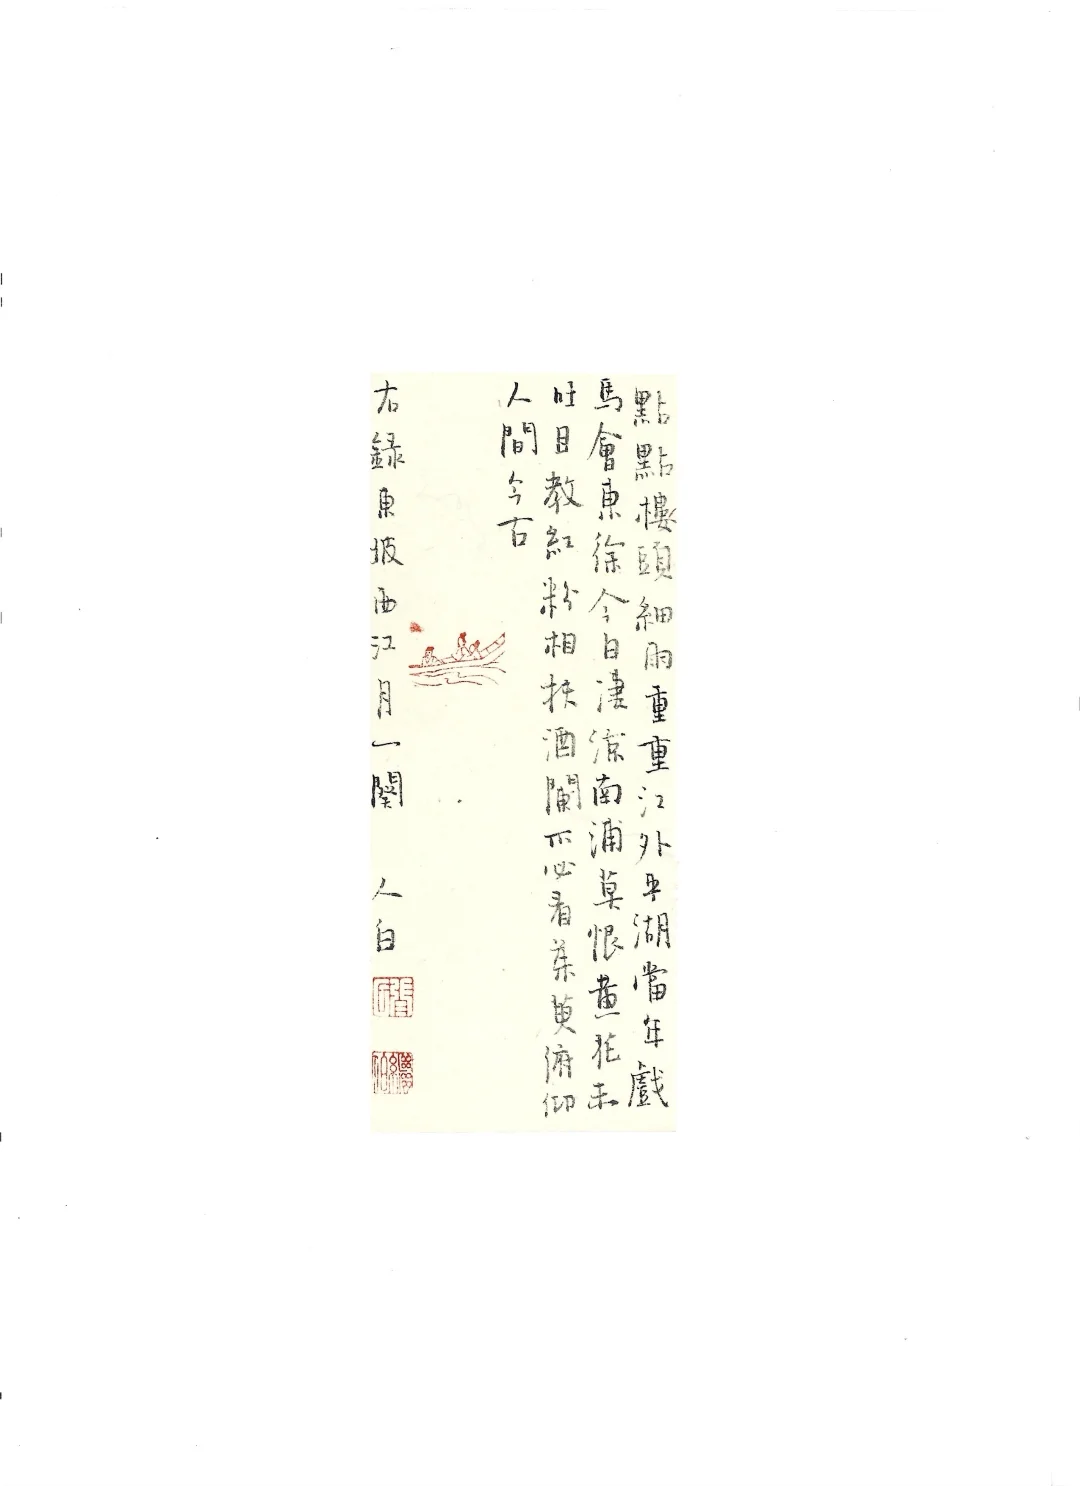 點點樓頭細雨重重江外平湖當年戲
馬會東徐今日淒涼南浦莫恨黃花未
吐且教紅粉相扶酒闌不必看茱萸俯仰
人間今古
右錄東坡西江月一闋 人白